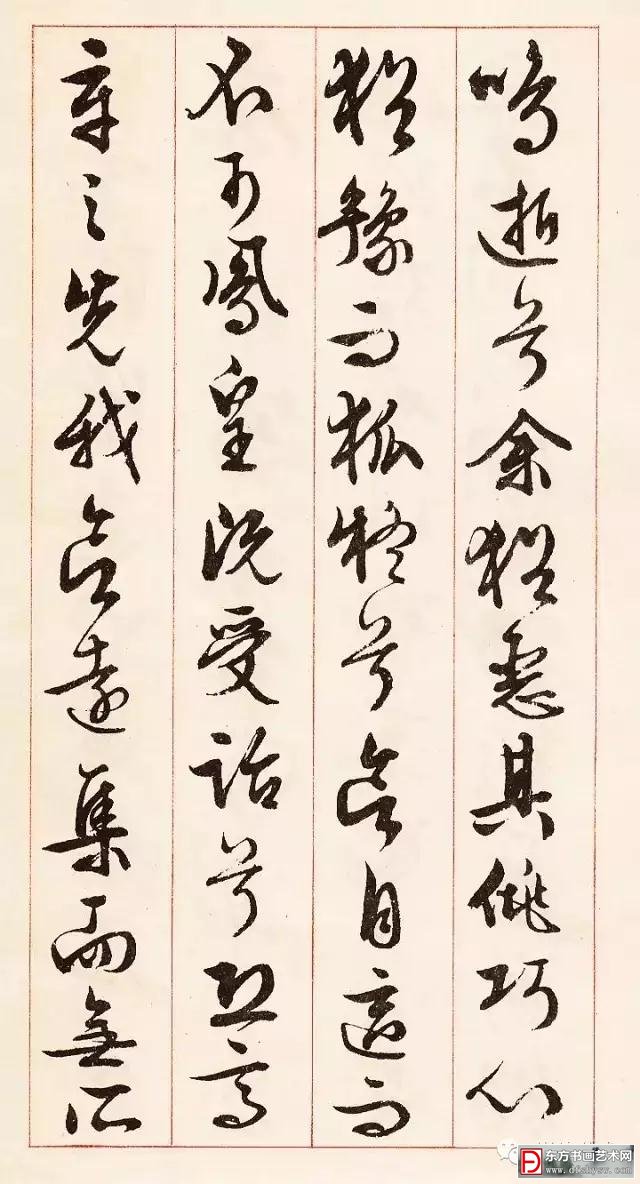 鸣逝兮余猶惡其佻巧心
猶豫而狐疑兮欲自適而
不可鳳皇既受詒兮恐高
辛之先我欲遠集而無所
东方书画艺术网
www.dfshysw.com